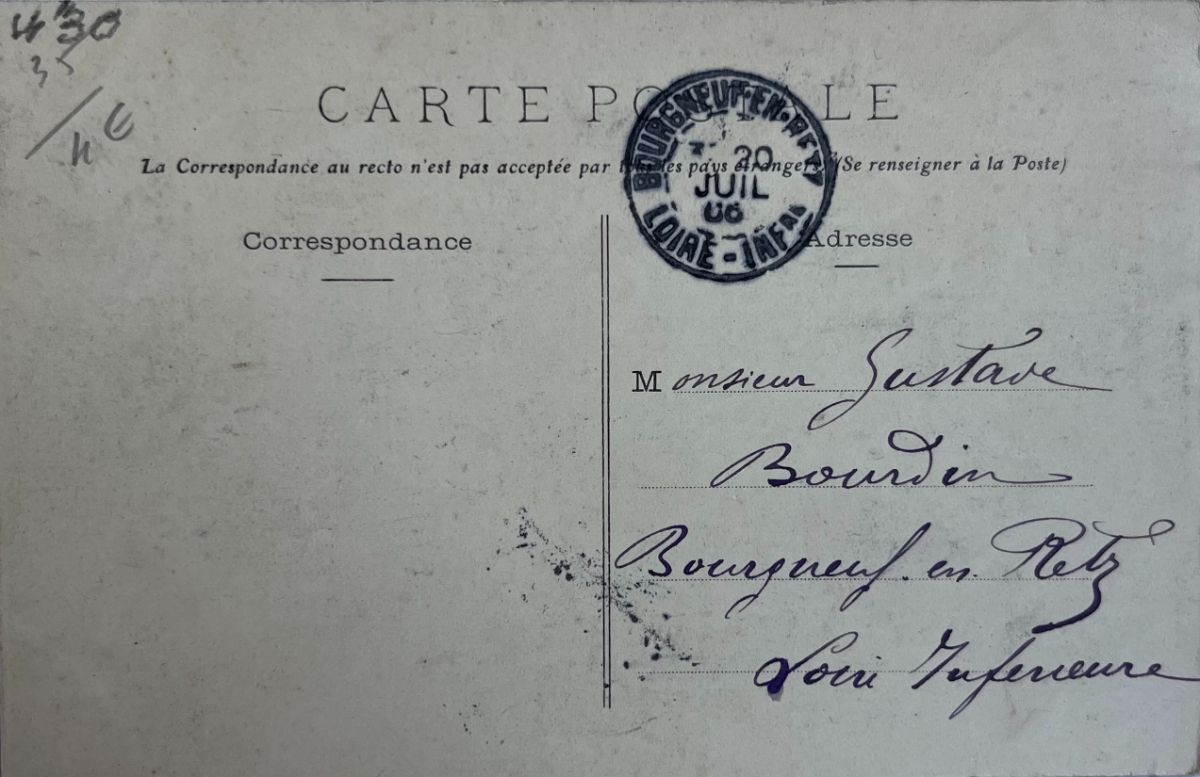 430
35
4€
CARTE POSTALE
La Correspondance au recto n'est pas acceptée par tous les pays étrangers (Se renseigner à la Poste)
BOURGNEUF-EN-RETZ
20
JUIL
06
LOIRE-INFRE
Correspondance
Adresse
Monsieur Gustave
Bourdin
Bourgneuf. en. Retz
Loire Inferieure